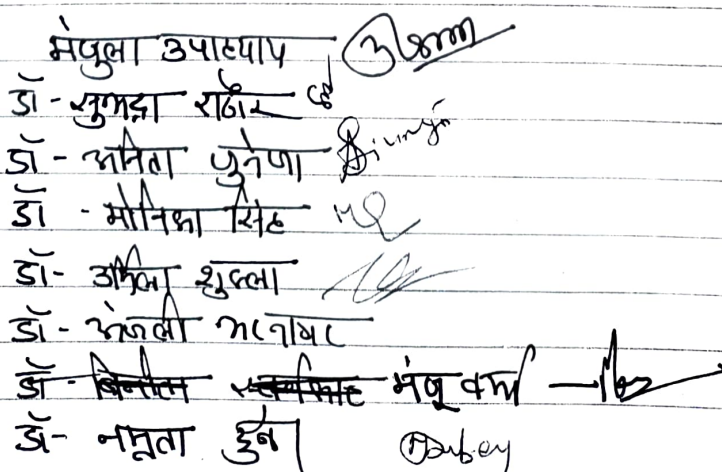 मंजुला उपाध्याय
डॉ - सुभद्रा राठौर
डॉ - अनिता जुनेजा
डॉ - मोनिका सिंह
डॉ - उर्मिला शुक्ला
डॉ - अंजली भटनागर
डॉ - मंजू वर्मा
डॉ - नम्रता दुबे Dubey